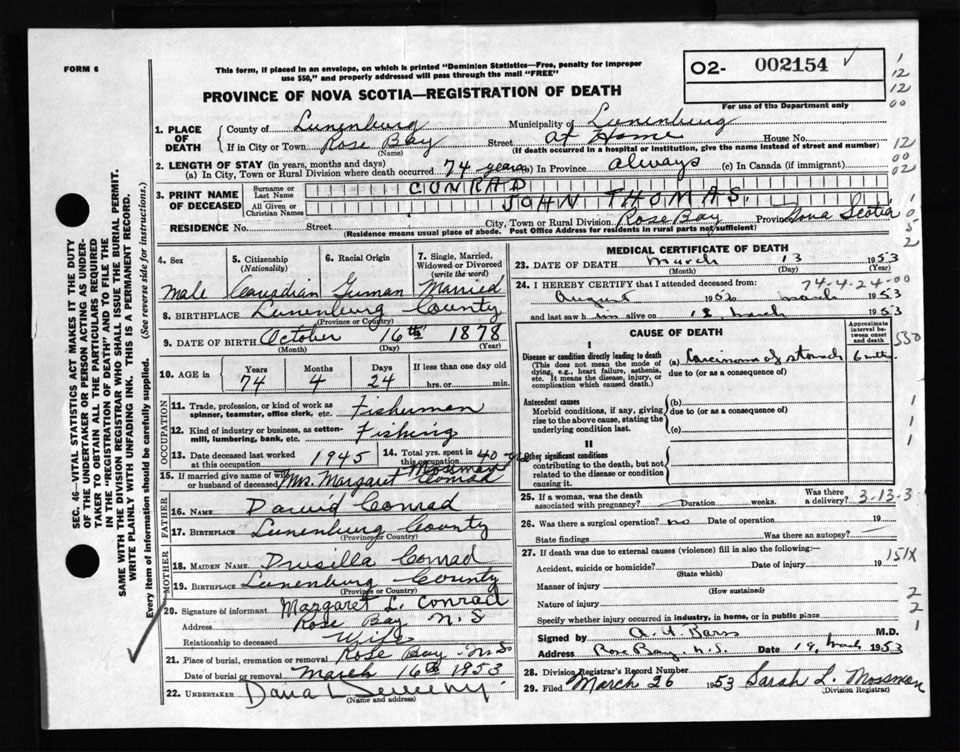 FORM 6
This form, if placed in an envelope, on which is printed "Dominion Statistics—Free, penalty for improper
use $50," and properly addressed will pass through the mail "FREE"
O2- 002154
For use of the Department only
PROVINCE OF NOVA SCOTIA—REGISTRATION OF DEATH
1. PLACE OF DEATH
County of Lunenburg Municipality of Lunenburg
If in City or Town Rose Bay Street At Home House No.
(Name) (If death occurred in a hospital or institution, give the name instead of street and number)
2. LENGTH OF STAY (in years, months and days)
(a) In City, Town or Rural Division where death occurred 74 years (b) In Province always (c) In Canada (if immigrant)
3. PRINT NAME OF DECEASED
Surname or Last Name CONRAD
All Given or Christian Names JOHN THOMAS.
RESIDENCE No. Street City, Town or Rural Division Rose Bay Province Nova Scotia
(Residence means usual place of abode. Post Office Address for residents in rural parts not sufficient)
4. Sex Male
5. Citizenship (Nationality) Canadian
6. Racial Origin German
7. Single, Married, Widowed or Divorced (write the word) Married
8. BIRTHPLACE Lunenburg County
(Province or Country)
9. DATE OF BIRTH October 16th 1878
(Month) (Day) (Year)
10. AGE in Years 74 Months 4 Days 24 If less than one day
hrs. or min.
OCCUPATION
11. Trade, profession, or kind of work as
spinner, teamster, office clerk, etc. Fishermen
12. Kind of industry or business, as cotton-
mill, lumbering, bank, etc. Fishing
13. Date deceased last worked
at this occupation 1945
14. Total yrs. spent in
this occupation 40
15. If married give name of wife
or husband of deceased Mrs. Margaret Mosman Conrad
FATHER
16. NAME David Conrad
17. BIRTHPLACE Lunenburg County
(Province or Country)
MOTHER
18. MAIDEN NAME Drusilla Conrad
19. BIRTHPLACE Lunenburg County
(Province or Country)
20. Signature of informant Margaret L. Conrad
Address Rose Bay N.S
Relationship to deceased Wife
21. Place of burial, cremation or removal Rose Bay N.S
Date of burial or removal March 16th 1953
22. UNDERTAKER Dana L Sweeny
(Name and address)
MEDICAL CERTIFICATE OF DEATH
23. DATE OF DEATH March 13 1953
(Month) (Day) (Year)
74-4-24-00
24. I HEREBY CERTIFY that I attended deceased from:
August 1952 to March 1953
and last saw him alive on 13 March 1953
CAUSE OF DEATH
Approximate interval between onset and death
I
Disease or condition directly leading to death
(This does not mean the mode of
dying, e.g., heart failure, asthenia,
etc. It means the disease, injury, or
complication which caused death.)
(a) Carcinoma of stomach 6 mths
due to (or as a consequence of)
Antecedent causes
Morbid conditions, if any, giving
rise to the above cause, stating the
underlying condition last.
(b)
due to (or as a consequence of)
(c)
II
Other significant conditions
contributing to the death, but not
related to the disease or condition
causing it.
25. If a woman, was the death
associated with pregnancy? Duration weeks. Was there a delivery? 3-13-3
26. Was there surgical operation? no Date of operation 19
State findings Was there an autopsy?
27. If death was due to external causes (violence) fill in also the following:—
Accident, suicide or homicide? Date of injury 19
(State which)
151X
Manner of injury
(How sustained)
Nature of injury
Specify whether injury occurred in industry, in home, or in public place
Signed by M.D.
Address Rose Bay N.S. Date 19, March 1953
28. Division Registrar's Record Number
29. Filed March 26 1953 Sarah L. Mossman
(Division Registrar)
SEC. 46—VITAL STATISTICS ACT MAKES IT THE DUTY
OF THE UNDERTAKER OR PERSON ACTING AS UNDER-
TAKER TO OBTAIN ALL THE PARTICULARS REQUIRED
IN THE "REGISTRATION OF DEATH" AND TO FILE THE
SAME WITH THE DIVISION REGISTRAR WHO SHALL ISSUE THE BURIAL PERMIT.
WRITE PLAINLY WITH UNFADING INK. THIS IS A PERMANENT RECORD.
Every item of information should be carefully supplied. (See reverse side for instructions.)
1
12
12
00
12
00
02
1
0
5
2
550
1
1
1
2
2
1